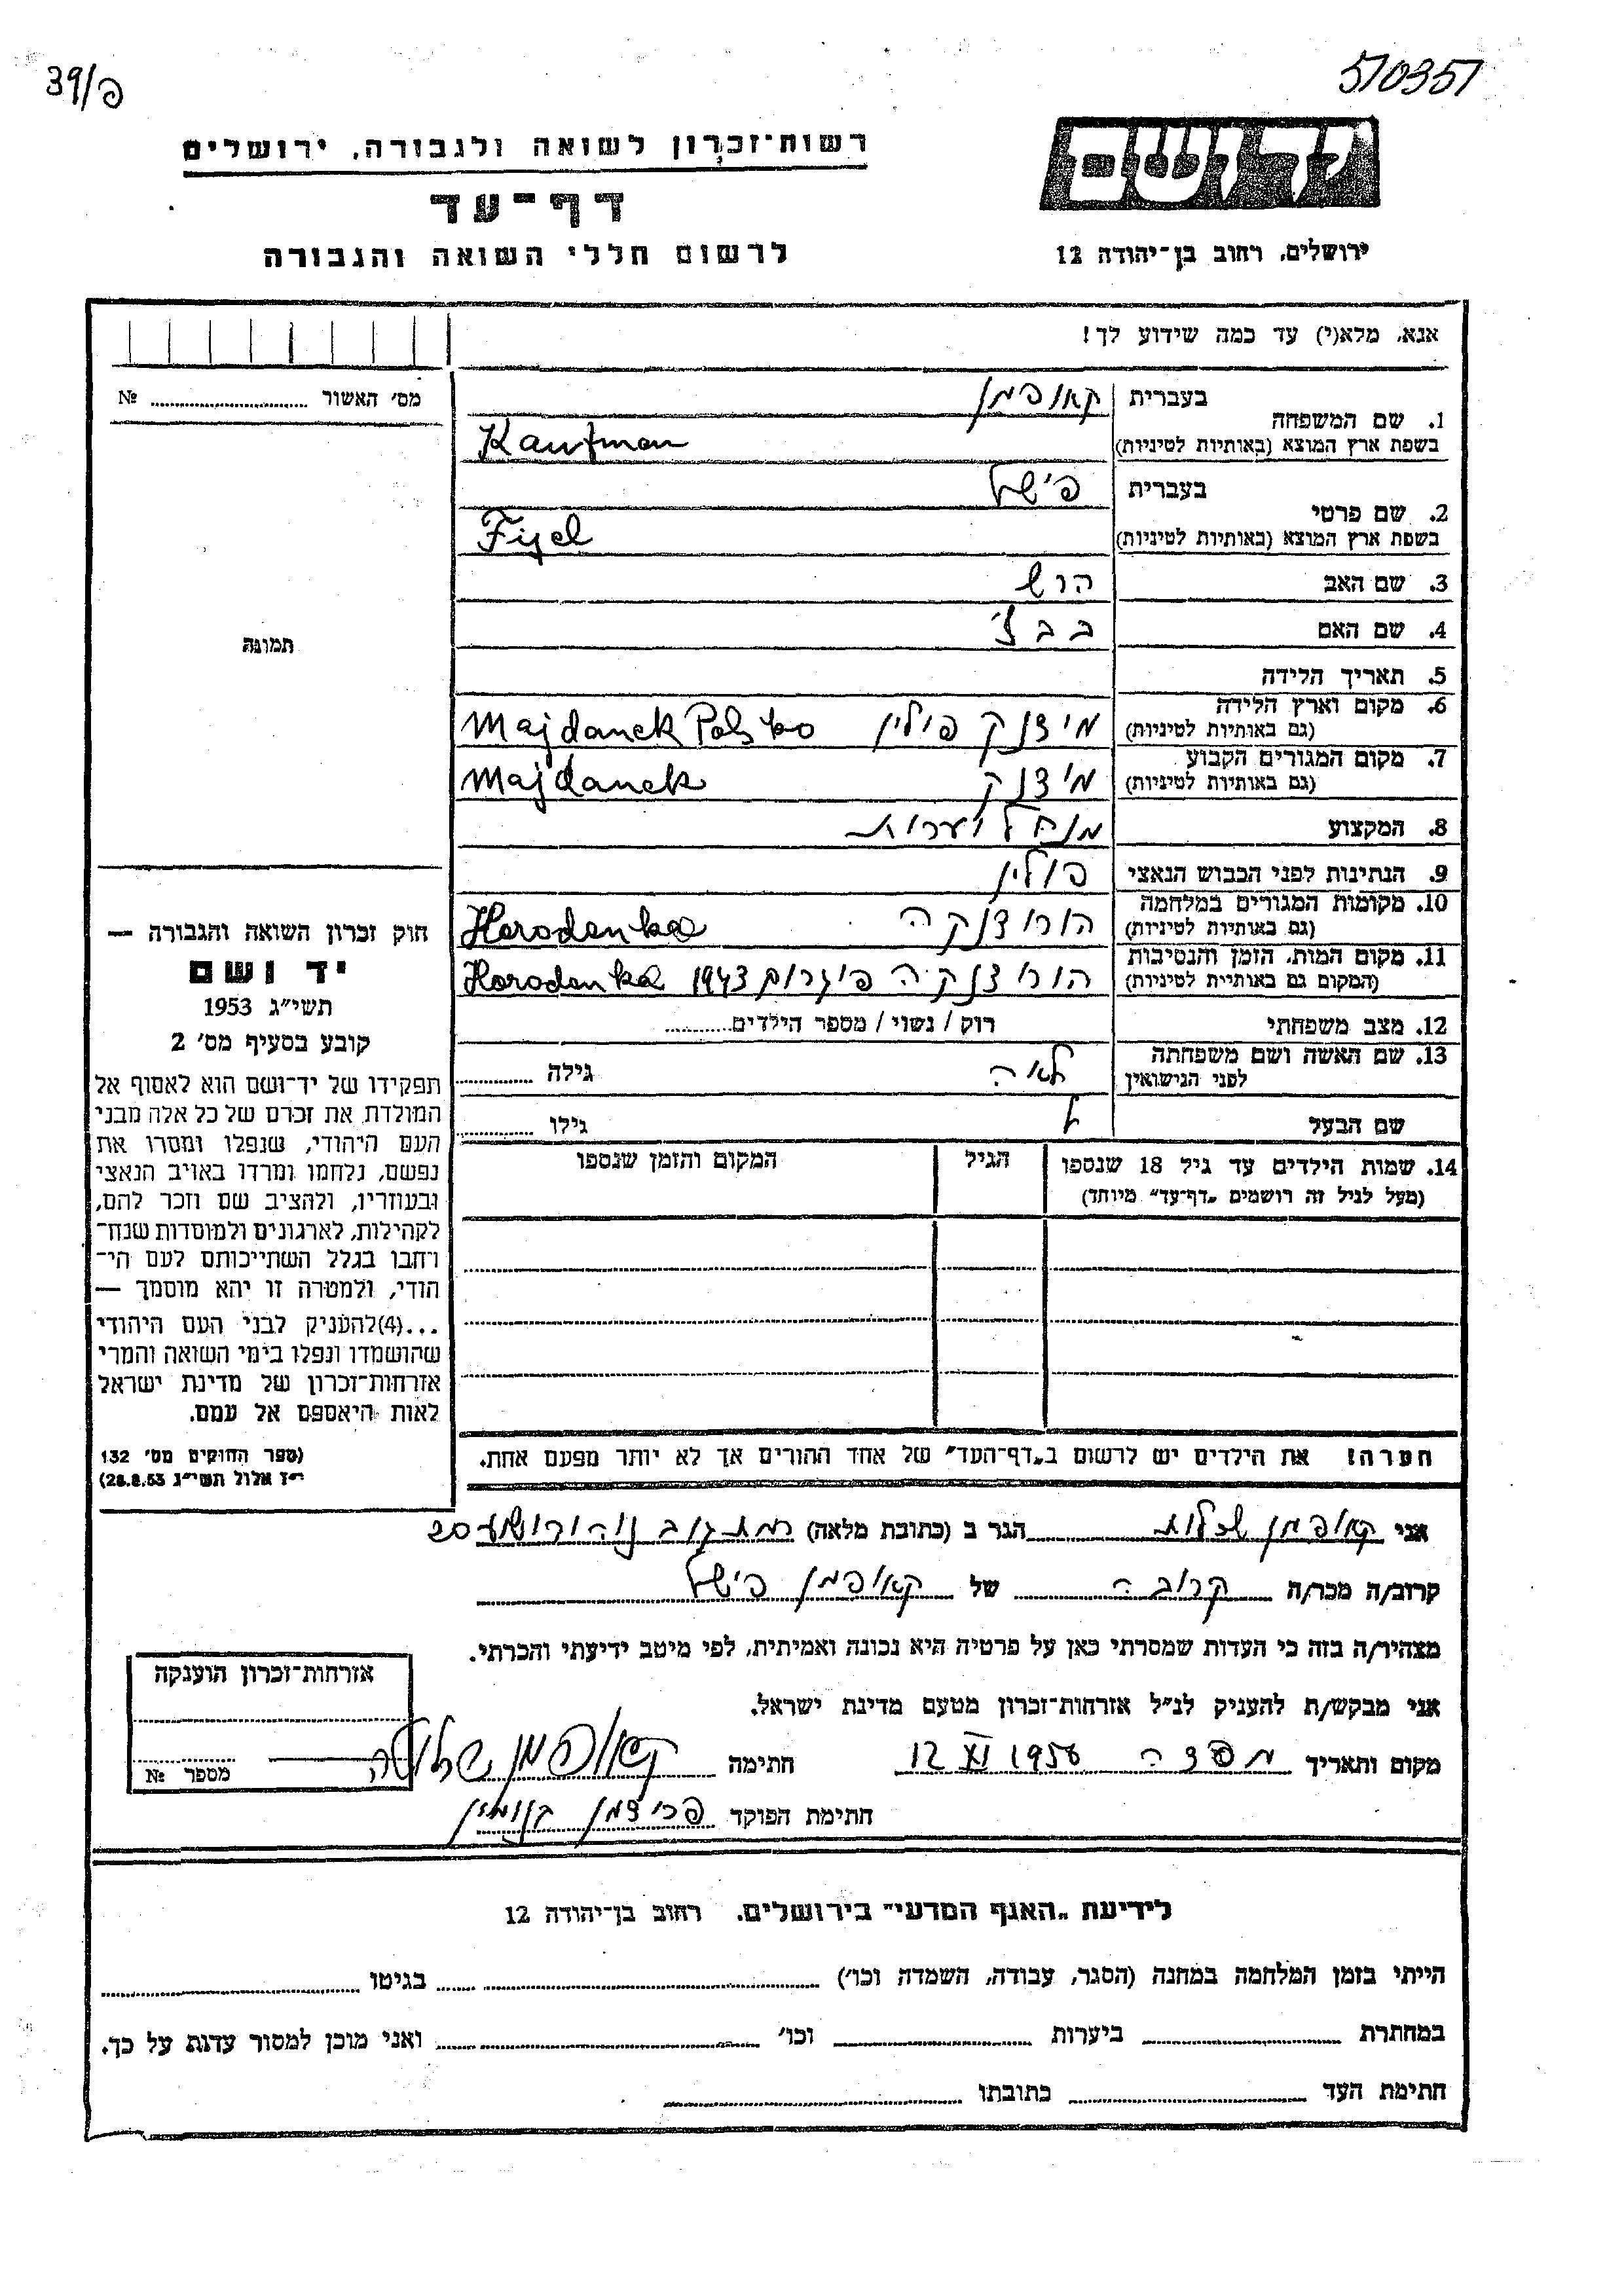 39/פ
510351
יד ושם
ירושלים, רחוב בן-יהודה 12
רשות-זכרון לשואה ולגבורה, ירושלים
דף-עד
לרשום חללי השואה והגבורה
אנא, מלא(י) עד כמה שידוע לך!
מס' האשור № 
1. שם המשפחה
בעברית קאופמן
בשפת ארץ המוצא (באותיות לטיניות) Kaufman
2. שם פרטי
בעברית פישל
בשפת ארץ המוצא (באותיות לטיניות) Fijel
3. שם האב הרש
4. שם האם
5. תאריך הלידה
6. מקום וארץ הלידה
(גם באותיות לטיניות) מידנק פולין Majdanek Polsko
7. מקום המגורים הקבוע
(גם באותיות לטיניות) מידנק Majdanek
8. המקצוע מנהל יערות
9. הנתינות לפני הכבוש הנאצי פולין
10. מקומות המגורים במלחמה
(גם באותיות לטיניות) הורודנקה Horodenka
11. מקום המות, הזמן והנסיבות
(המקום גם באותיית לטיניות) הורודנקה פוגרום 1943 Horodenka
12. מצב משפחתי רוק / נשוי / מספר הילדים
13. שם האשה ושם משפחתה
לפני הנישואין לאה גילה
שם הבעל גילו
14. שמות הילדים עד גיל 18 שנספו
(מעל לגיל זה רושמים „דף-עד" מיוחד)
הגיל
המקום והזמן שנספו
תמונה
חוק זכרון השואה והגבורה —
יד ושם
תשי"ג 1953
קובע בסעיף מס' 2
תפקידו של יד-ושם הוא לאסוף אל
המולדת את זכרם של כל אלה מבני
העם היהודי, שנפלו ומסרו את
נפשם, נלחמו ומרדו באויב הנאצי
ובעוזריו, ולהציב שם וזכר להם,
לקהילות, לארגונים ולמוסדות שנח-
רבו בגלל השתייכותם לעם הי-
הודי, ולמטרה זו יהא מוסמך —
...(4)להעניק לבני העם היהודי
שהושמדו ונפלו בימי השואה והמרי
אזרחות-זכרון של מדינת ישראל
לאות היאספם אל עמם.
(ספר החוקים מס' 132
י"ז אלול תשי"ג 28.8.53)
הערה! את הילדים יש לרשום ב„דף-העד" של אחד ההורים אך לא יותר מפעם אחת.
אני קאופמן הגר ב (כתובת מלאה)
קרוב/ה מכר/ה קרובה של קאופמן פישל
מצהיר/ה בזה כי העדות שמסרתי כאן על פרטיה היא נכונה ואמיתית, לפי מיטב ידיעתי והכרתי.
אני מבקש/ת להעניק לנ"ל אזרחות-זכרון מטעם מדינת ישראל.
מקום ותאריך 12 XI 1956 חתימה קאופמן
חתימת הפוקד
אזרחות-זכרון הוענקה
מספר №
לידיעת „האגף המדעי" בירושלים, רחוב בן-יהודה 12
הייתי בזמן המלחמה במחנה (הסגר, עבודה, השמדה וכו') בגיטו
במחתרת ביערות וכו' ואני מוכן למסור עדות על כך.
חתימת העד כתובתו